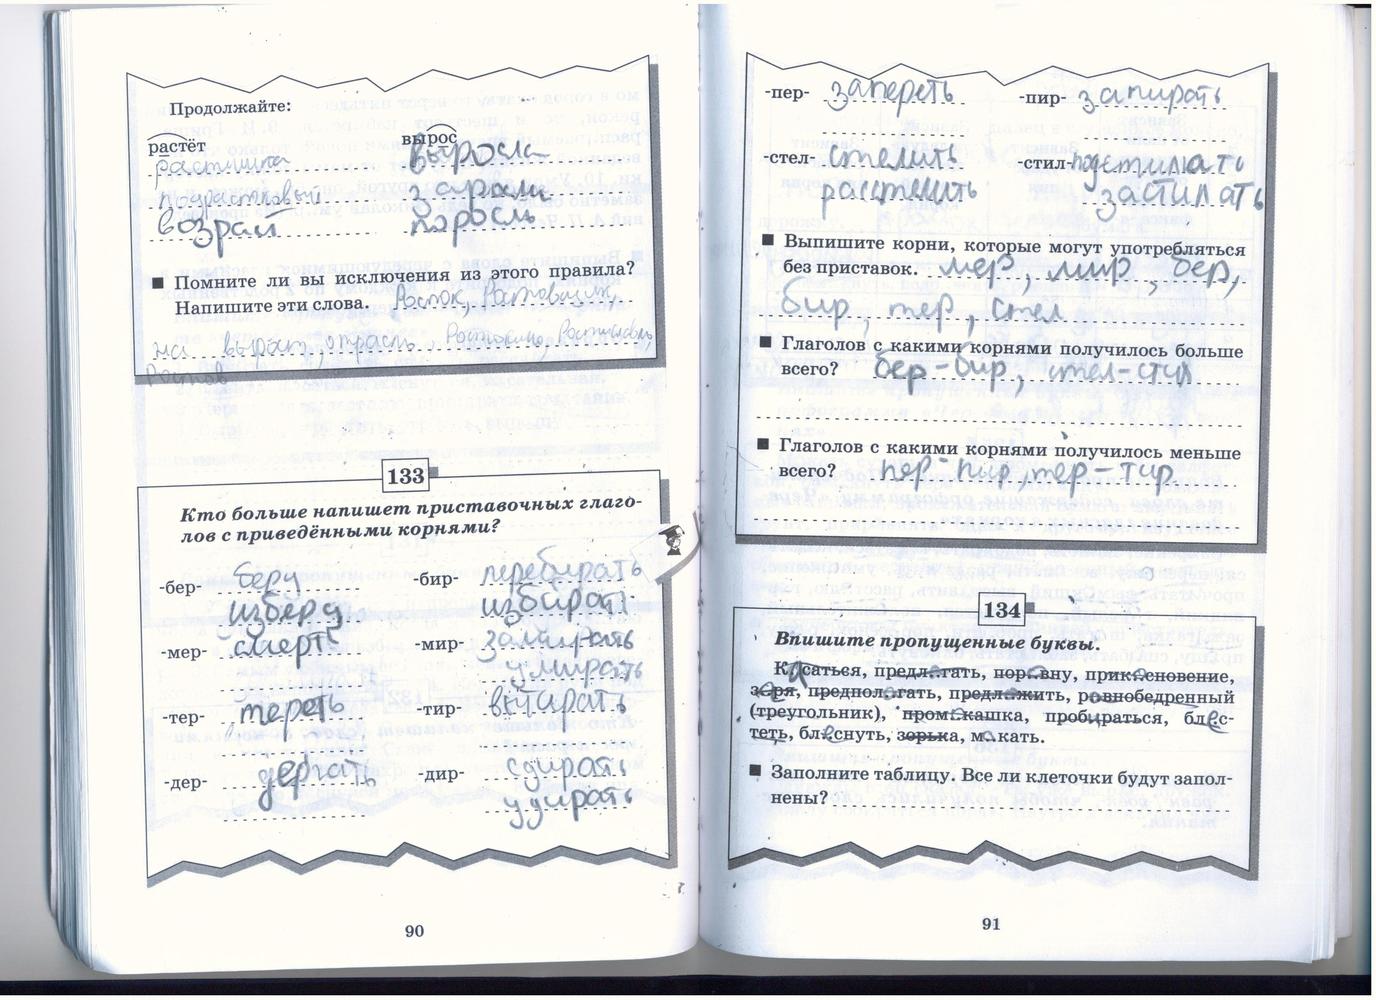 Продолжайте:
растёт вырос
Растишка выросла
подрастковый заросли
возраст поросль
■ Помните ли вы исключения из этого правила?
Напишите эти слова. Росток, Ростовщик,
на вырост, отрасль Ростислав,
Ростов
133
Кто больше напишет приставочных глаго-
лов с приведёнными корнями?
-бер- беру -бир- перебирать
изберу избирать
-мер- смерть -мир- замирать
умирать
-тер- тереть -тир- втирать
-дер- дергать -дир- сдирать
удирать
90
-пер- запереть -пир- запирать
-стел- стелить -стил- подстилать
расстелить застилать
■ Выпишите корни, которые могут употребляться
без приставок. мер, мир, бер,
бир, тер, стел
■ Глаголов с какими корнями получилось больше
всего? бер-бир, стел-стил
■ Глаголов с какими корнями получилось меньше
всего? пер-пир, тер-тир.
134
Впишите пропущенные буквы.
Касаться, предлагать, поровну, прикосновение,
заря, предполагать, предложить, равнобедренный
(треугольник), промокашка, пробираться, блес-
теть, блеснуть, зорька, макать.
■ Заполните таблицу. Все ли клеточки будут запол-
нены?
91